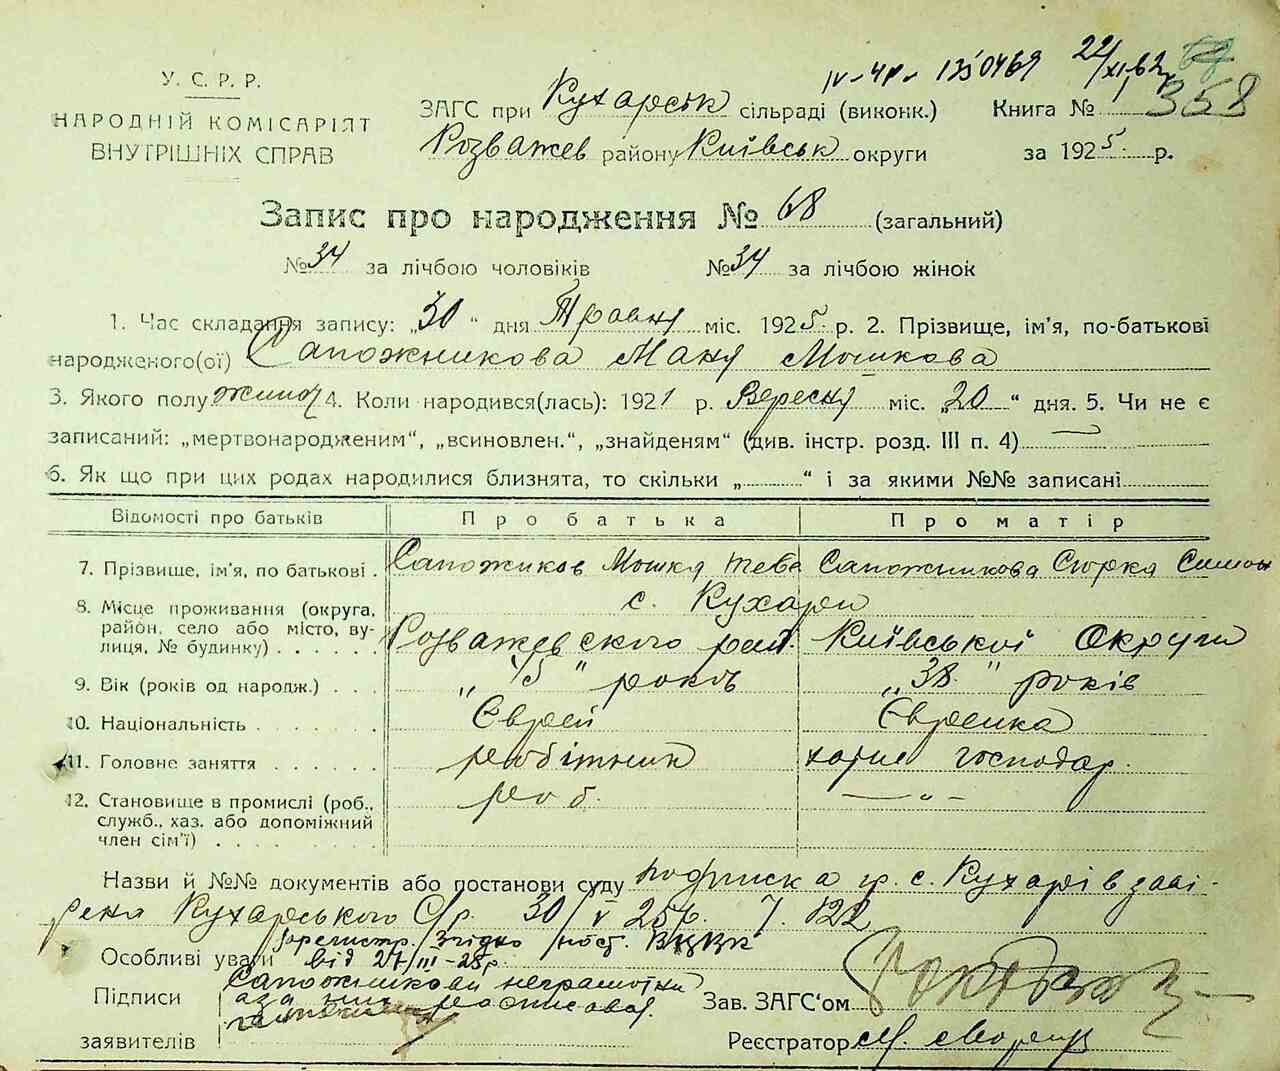 IV-ЧЮ- 1350469 22/XI-62
У. С. Р. Р.
НАРОДНІЙ КОМІСАРІЯТ
ВНУТРІШНІХ СПРАВ
ЗАГС при Кухарськ сільраді (виконк.) Книга № 358
Розважев району Київськ округи за 1925. р.
Запис про народження № 68 (загальний)
№ 34 за лічбою чоловіків № 34 за лічбою жінок
1. Час складання запису: „30" дня Травня міс. 1925. р. 2. Прізвище, ім'я, по-батькові
народженого(ої) Сапожникова Маня Мошкова
3. Якого полу жиноч 4. Коли народився(лась): 1921 р. Вересня міс. „20" дня. 5. Чи не є
записаний: „мертвонародженим", „всиновлен.", „знайденям" (див. інстр. розд. III п. 4)
6. Як що при цих родах народилися близнята, то скільки „ " і за якими №№ записані
Відомості про батьків Про батька Про матір
7. Прізвище, ім'я, по батькові . Сапожников Мошка Сапожникова Симон
8. Місце проживання (округа, с. Кухари
район, село або місто, ву- Розважевского рай. Київської Округи
лиця, № будинку) . . . . . .
9. Вік (років од народж.) . . . „45" років „38" років
10. Національність . . . . . . . Єврей Єврейка
11. Головне заняття . . . . . . робітник господар.
12. Становище в промислі (роб., роб. — " —
служб., хаз. або допоміжний
член сім'ї) . . . . . . . . .
Назви й №№ документів або постанови суду подписка гр. с. Кухарі в заві-
рена Кухарського С/р. 30/V 25р. 122
зарегистр. згідно пост. ВЦВК
Особливі уваги від 27/III-25р.
Сапожников неграмотний
Підписи а за них росписовал
Зав. ЗАГС'ом
заявителів Реєстратор М.